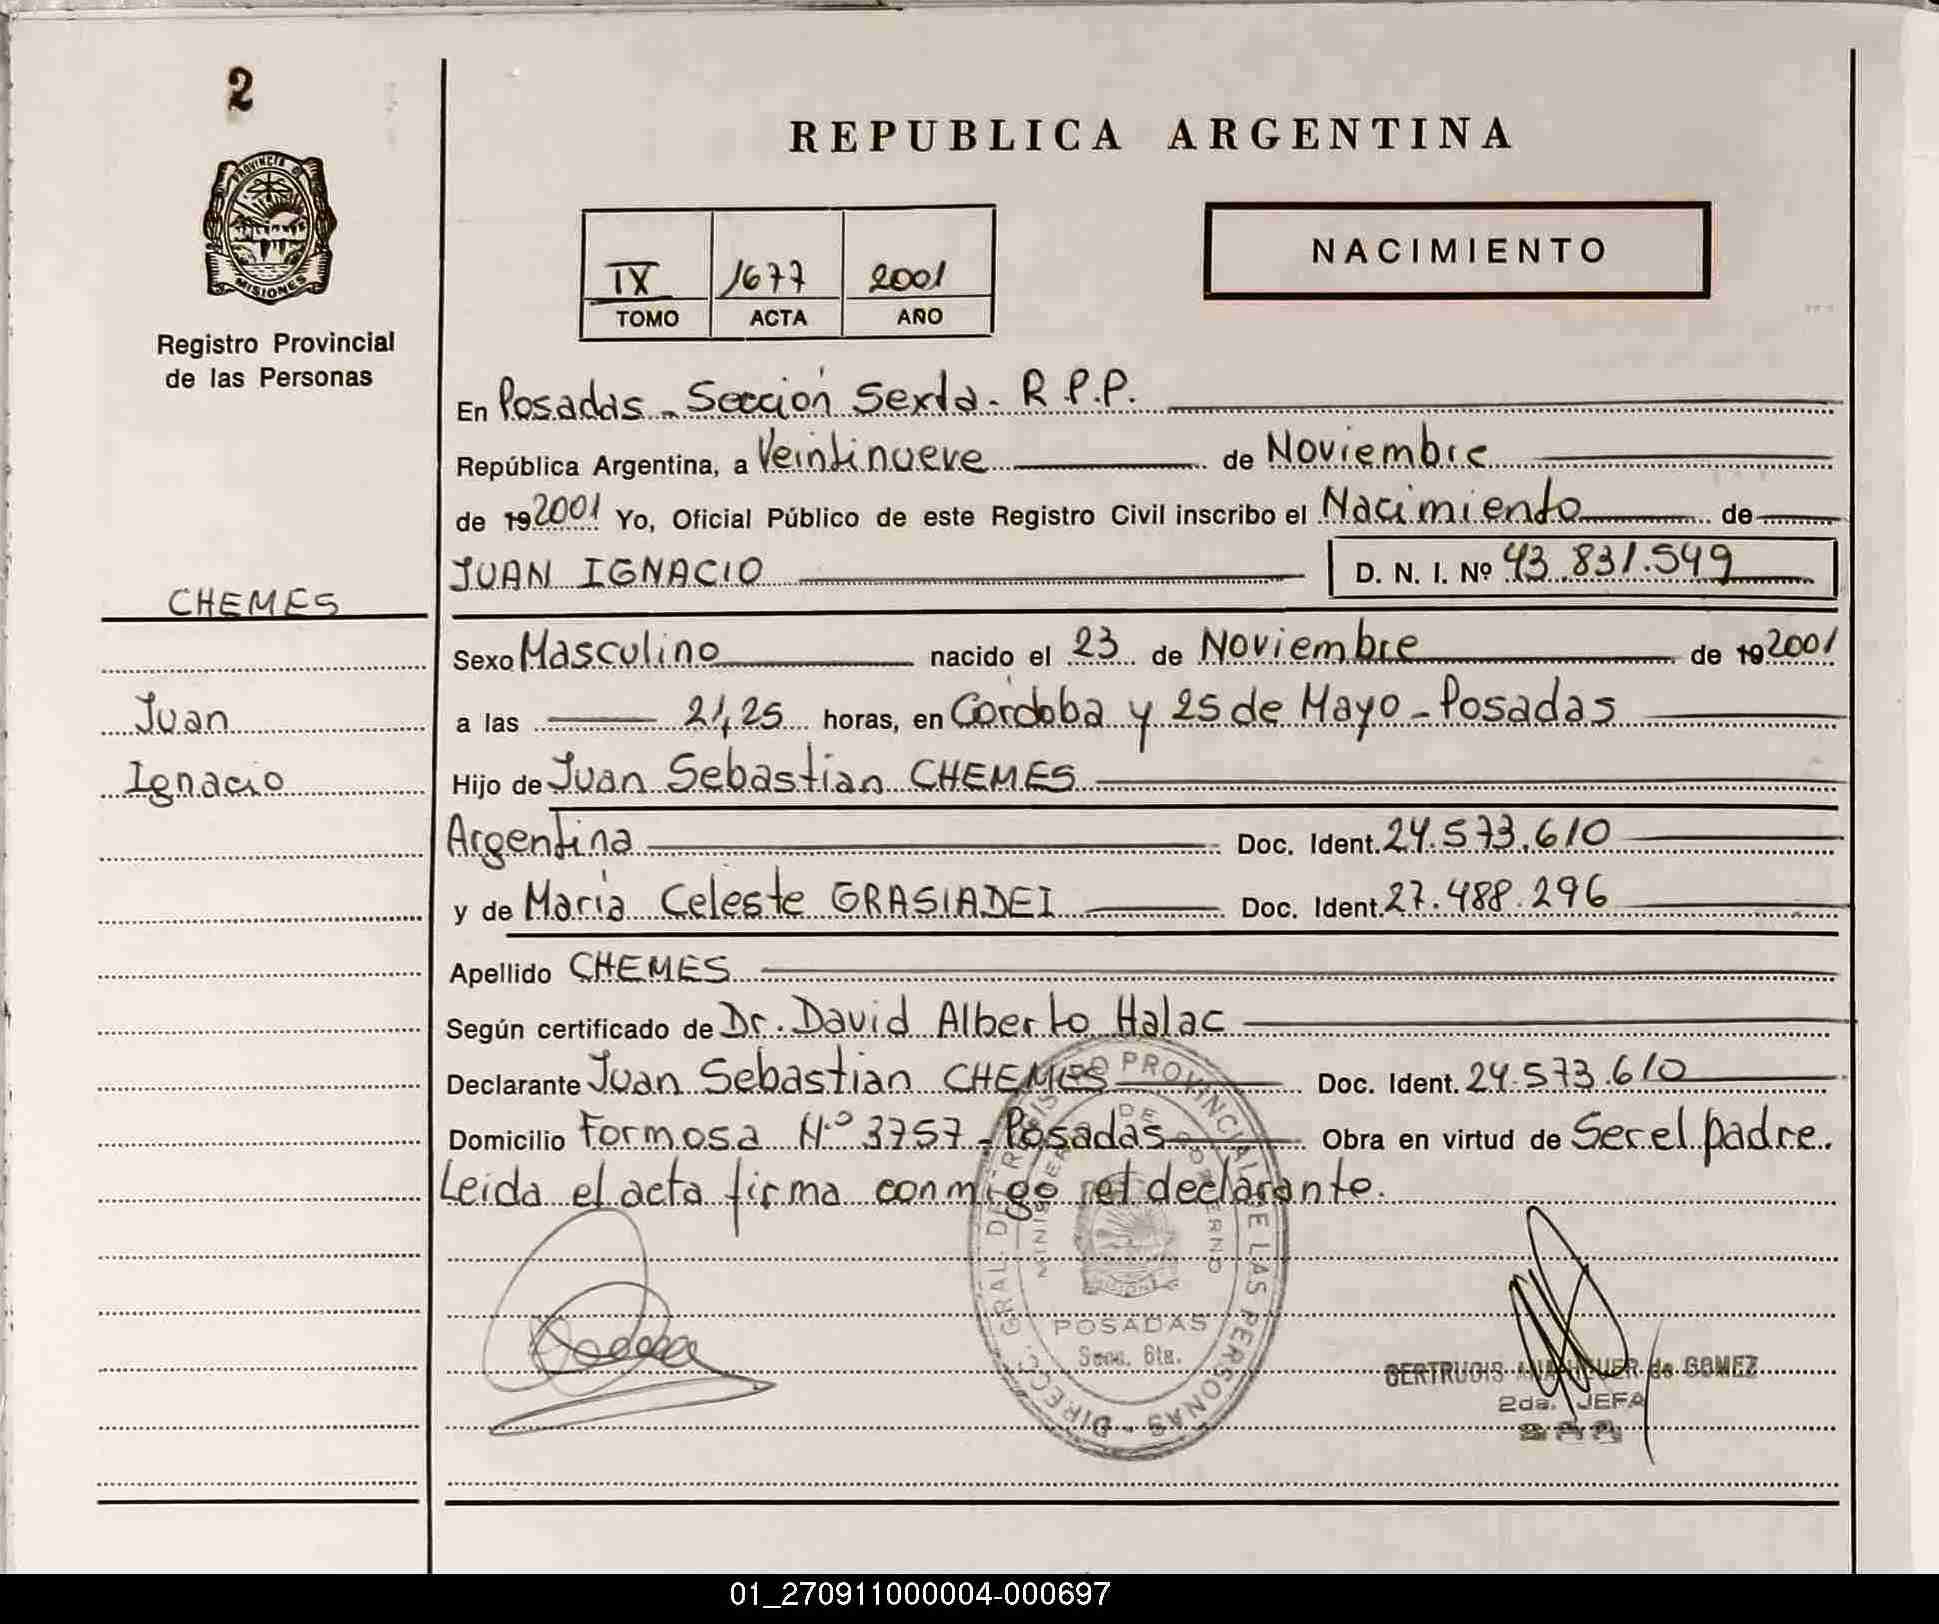 2
PROVINCIA DE
MISIONES
Registro Provincial
de las Personas
CHEMES
Juan
Ignacio
REPUBLICA ARGENTINA
IX 1677 2001
TOMO ACTA AÑO
NACIMIENTO
En Posadas - Sección Sexta - R.P.P.
República Argentina, a Veintinueve de Noviembre
de 192001 Yo, Oficial Público de este Registro Civil inscribo el Nacimiento de
JUAN IGNACIO D. N. I. Nº 43.831.549
Sexo Masculino nacido el 23 de Noviembre de 192001
a las 21,25 horas, en Córdoba y 25 de Mayo - Posadas
Hijo de Juan Sebastian CHEMES
Argentina Doc. Ident. 24.573.610
y de María Celeste GRASIADEI Doc. Ident. 27.488.296
Apellido CHEMES
Según certificado de Dr. David Alberto Halac
Declarante Juan Sebastian CHEMES Doc. Ident. 24.573.610
Domicilio Formosa Nº 3757 - Posadas Obra en virtud de Ser el padre.
Leida el acta firma conmigo el declarante.
DIRECC. GRAL. DEL REGISTRO PROVINCIAL DE LAS PERSONAS
MINISTERIO DE GOBIERNO
POSADAS
Secc. 6ta.
GERTRUDIS ANA de GOMEZ
2da. JEFA
01_270911000004-000697